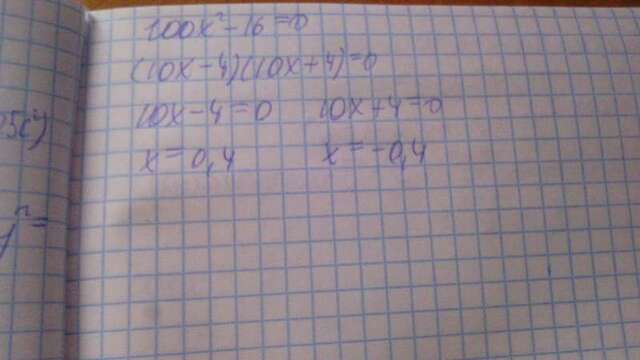 100x² - 16 = 0
(10x - 4)(10x + 4) = 0
10x - 4 = 0 10x + 4 = 0
x = 0,4 x = -0,4